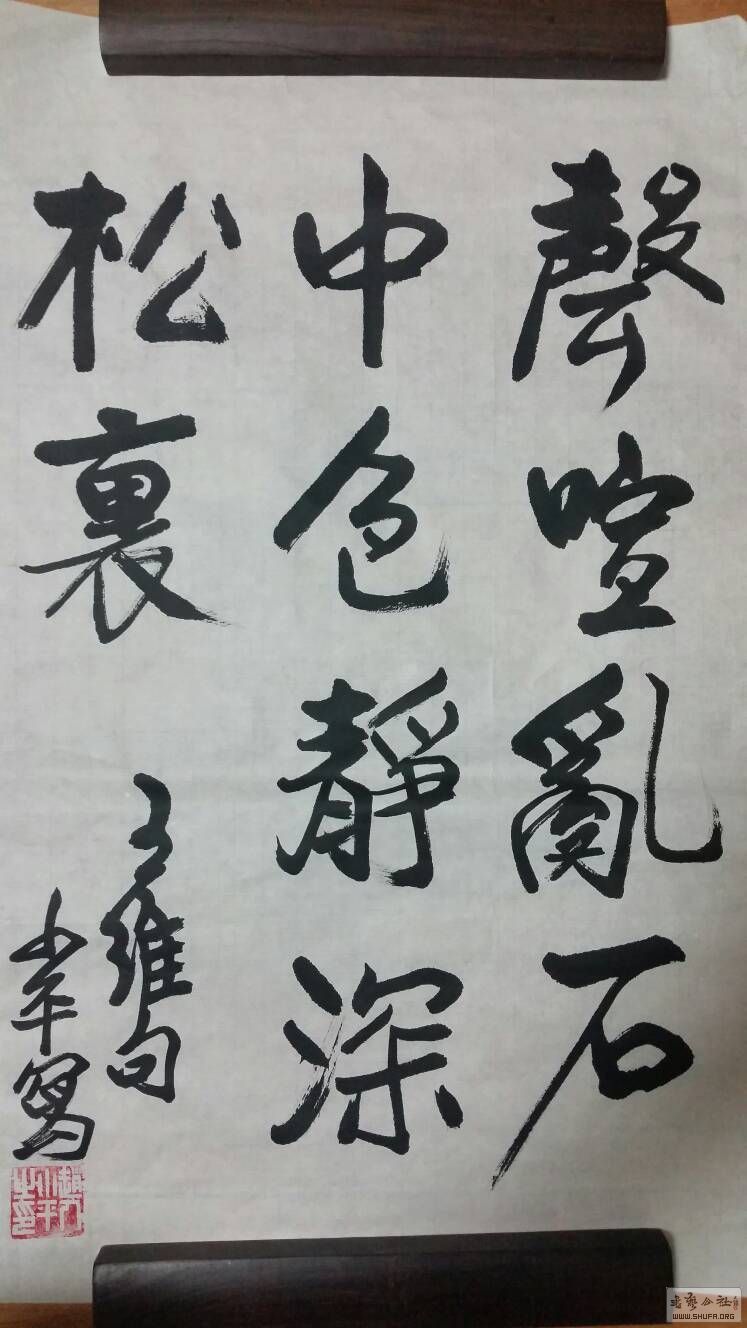 聲喧亂石
中色靜深
松裏
王維句
小平寫
书艺公社
WWW.SHUFA.ORG